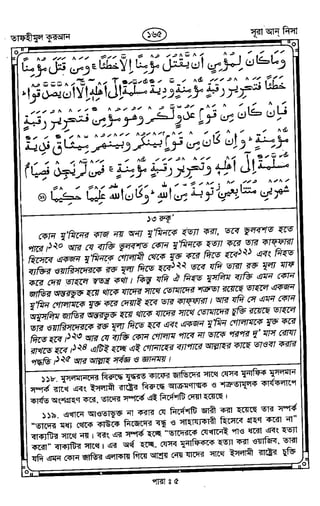 তাফহীমুল কুরআন ১৬৫ সূরা আন্ নিসা
وَمَا كَانَ لِمُؤْمِنٍ أَنْ يَقْتُلَ مُؤْمِنًا إِلَّا خَطَئًا وَمَنْ قَتَلَ مُؤْمِنًا
خَطَئًا فَتَحْرِيرُ رَقَبَةٍ مُؤْمِنَةٍ وَدِيَةٌ مُسَلَّمَةٌ إِلَى أَهْلِهِ إِلَّا أَنْ يَصَّدَّقُوا
فَإِنْ كَانَ مِنْ قَوْمٍ عَدُوٍّ لَكُمْ وَهُوَ مُؤْمِنٌ فَتَحْرِيرُ رَقَبَةٍ
مُؤْمِنَةٍ وَإِنْ كَانَ مِنْ قَوْمٍ بَيْنَكُمْ وَبَيْنَهُمْ مِيثَاقٌ فَدِيَةٌ
مُسَلَّمَةٌ إِلَى أَهْلِهِ وَتَحْرِيرُ رَقَبَةٍ مُؤْمِنَةٍ فَمَنْ لَمْ يَجِدْ فَصِيَامُ
شَهْرَيْنِ مُتَتَابِعَيْنِ تَوْبَةً مِنَ اللَّهِ وَكَانَ اللَّهُ عَلِيمًا حَكِيمًا
১৩ রুকূ'
কোন মু'মিনের কাজ নয় অন্য মু'মিনকে হত্যা করা, তবে ভুলবশত হতে
পারে।১২০ আর যে ব্যক্তি ভুলবশত কোন মু'মিনকে হত্যা করে তার কাফ্ফারা
হিসেবে একজন মু'মিনকে গোলামী থেকে মুক্ত করে দিতে হবে১২১ এবং নিহত
ব্যক্তির ওয়ারিসদেরকে রক্ত মূল্য দিতে হবে১২২ তবে যদি তারা রক্ত মূল্য মাফ
করে দেয় তাহলে স্বতন্ত্র কথা। কিন্তু যদি ঐ নিহত মুসলিম ব্যক্তি এমন কোন
জাতির অন্তরভুক্ত হয়ে থাকে যাদের সাথে তোমাদের শত্রুতা রয়েছে তাহলে একজন
মু'মিন গোলামকে মুক্ত করে দেয়াই হবে তার কাফ্ফারা। আর যদি সে এমন কোন
অমুসলিম জাতির অন্তরভুক্ত হয়ে থাকে যাদের সাথে তোমাদের চুক্তি রয়েছে তাহলে
তার ওয়ারিসদেরকে রক্ত মূল্য দিতে হবে এবং একজন মু'মিন গোলামকে মুক্ত করে
দিতে হবে।১২৩ আর যে ব্যক্তি কোন গোলাম পাবে না তাকে পরপর দু' মাস রোযা
রাখতে হবে।১২৪ এটিই হচ্ছে এই গোনাহের ব্যাপারে আল্লাহর কাছে তাওবা করার
পদ্ধতি।১২৫ আর আল্লাহ সর্বজ্ঞ ও জ্ঞানময়।
১১৮. মুসলমানদের বিরুদ্ধে যুদ্ধরত কাফের জাতিদের সাথে যেসব মুনাফিক মুসলমান
সম্পর্ক রাখে এবং ইসলামী রাষ্ট্রের বিরুদ্ধে আক্রমণাত্মক ও শত্রুতামূলক কার্যকলাপে
কার্যত অংশগ্রহণ করে, তাদের সম্পর্কে এই নির্দেশটি দেয়া হয়েছে।
১১৯. এখানে আওতাভুক্ত না করার যে নির্দেশটি জারী করা হয়েছে তার সম্পর্ক
"তাদের মধ্য থেকে কাউকে নিজেদের বন্ধু ও সাহায্যকারী হিসেবে গ্রহণ করো না"
বাক্যটির সাথে নয়। বরং এর সম্পর্ক হচ্ছে "তাদেরকে যেখানেই পাও ধরো এবং হত্যা
করো" বাক্যটির সাথে। এর অর্থ হচ্ছে, যেসব মুনাফিককে হত্যা করা ওয়াজিব, তারা
যদি এমন কোন জাতির এলাকায় গিয়ে আশ্রয় নেয় যাদের সাথে ইসলামী রাষ্ট্রের চুক্তি
পারা ঃ ৫